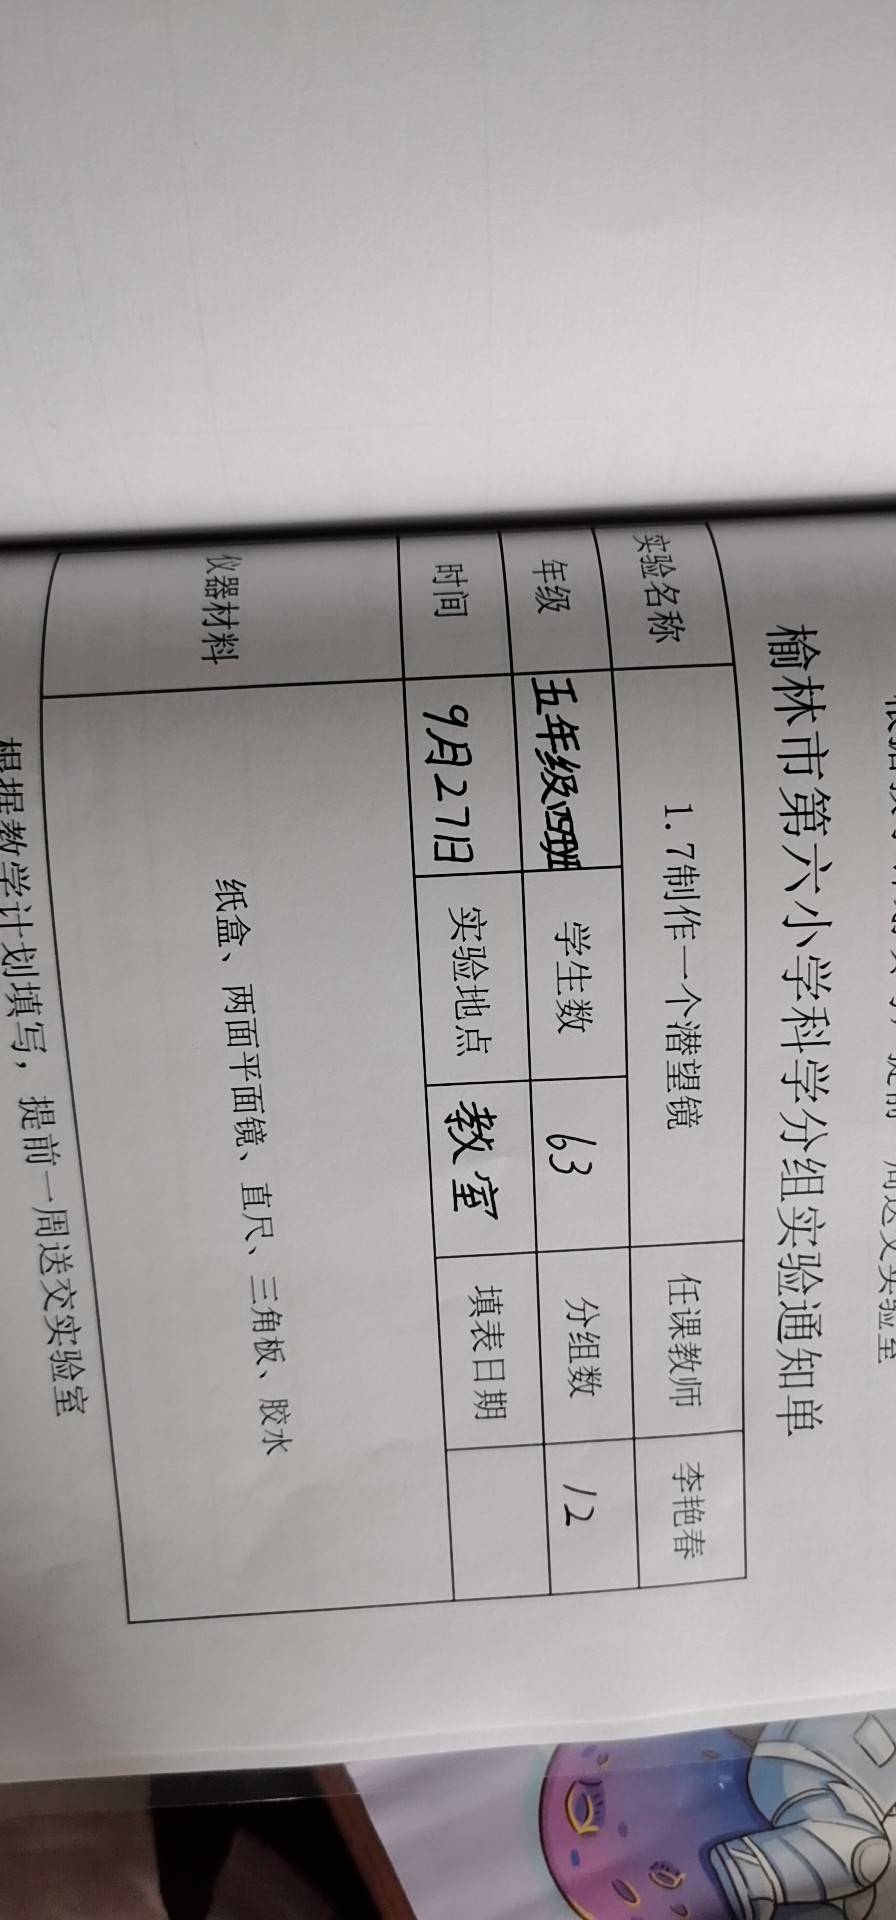 榆林市第六小学科学分组实验通知单
实验名称 1.7制作一个潜望镜 任课教师 李艳春
年级 五年级四班 学生数 63 分组数 12
时间 9月27日 实验地点 教室 填表日期
仪器材料 纸盒、两面平面镜、直尺、三角板、胶水
根据教学计划填写，提前一周送交实验室